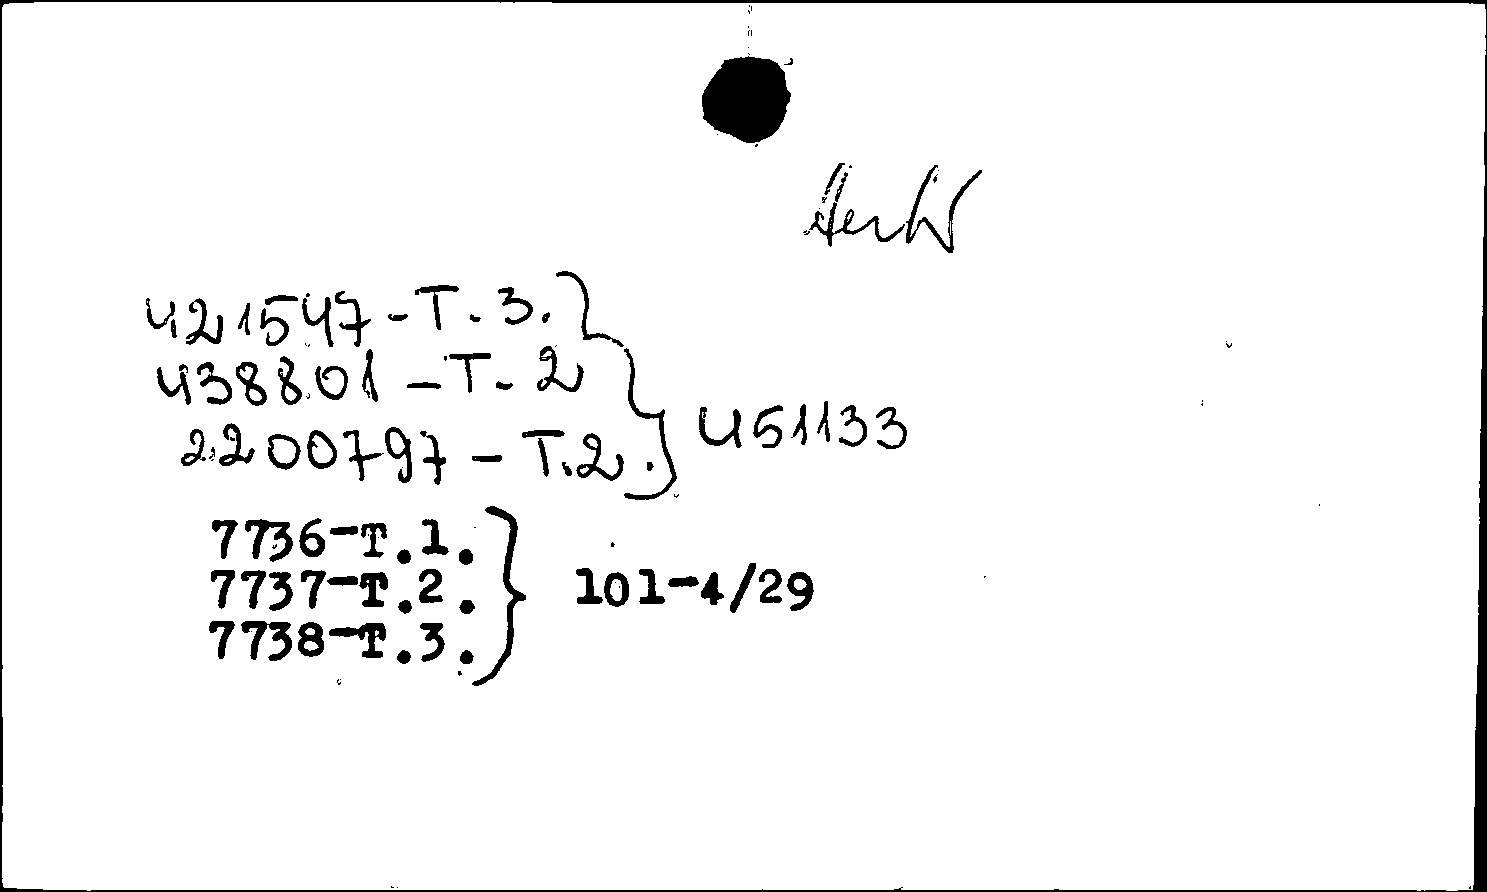 421547-Т.3.
438801-Т.2
2200797-Т.2.
451133
7736-Т.1.
7737-Т.2.
7738-Т.3.
101-4/29